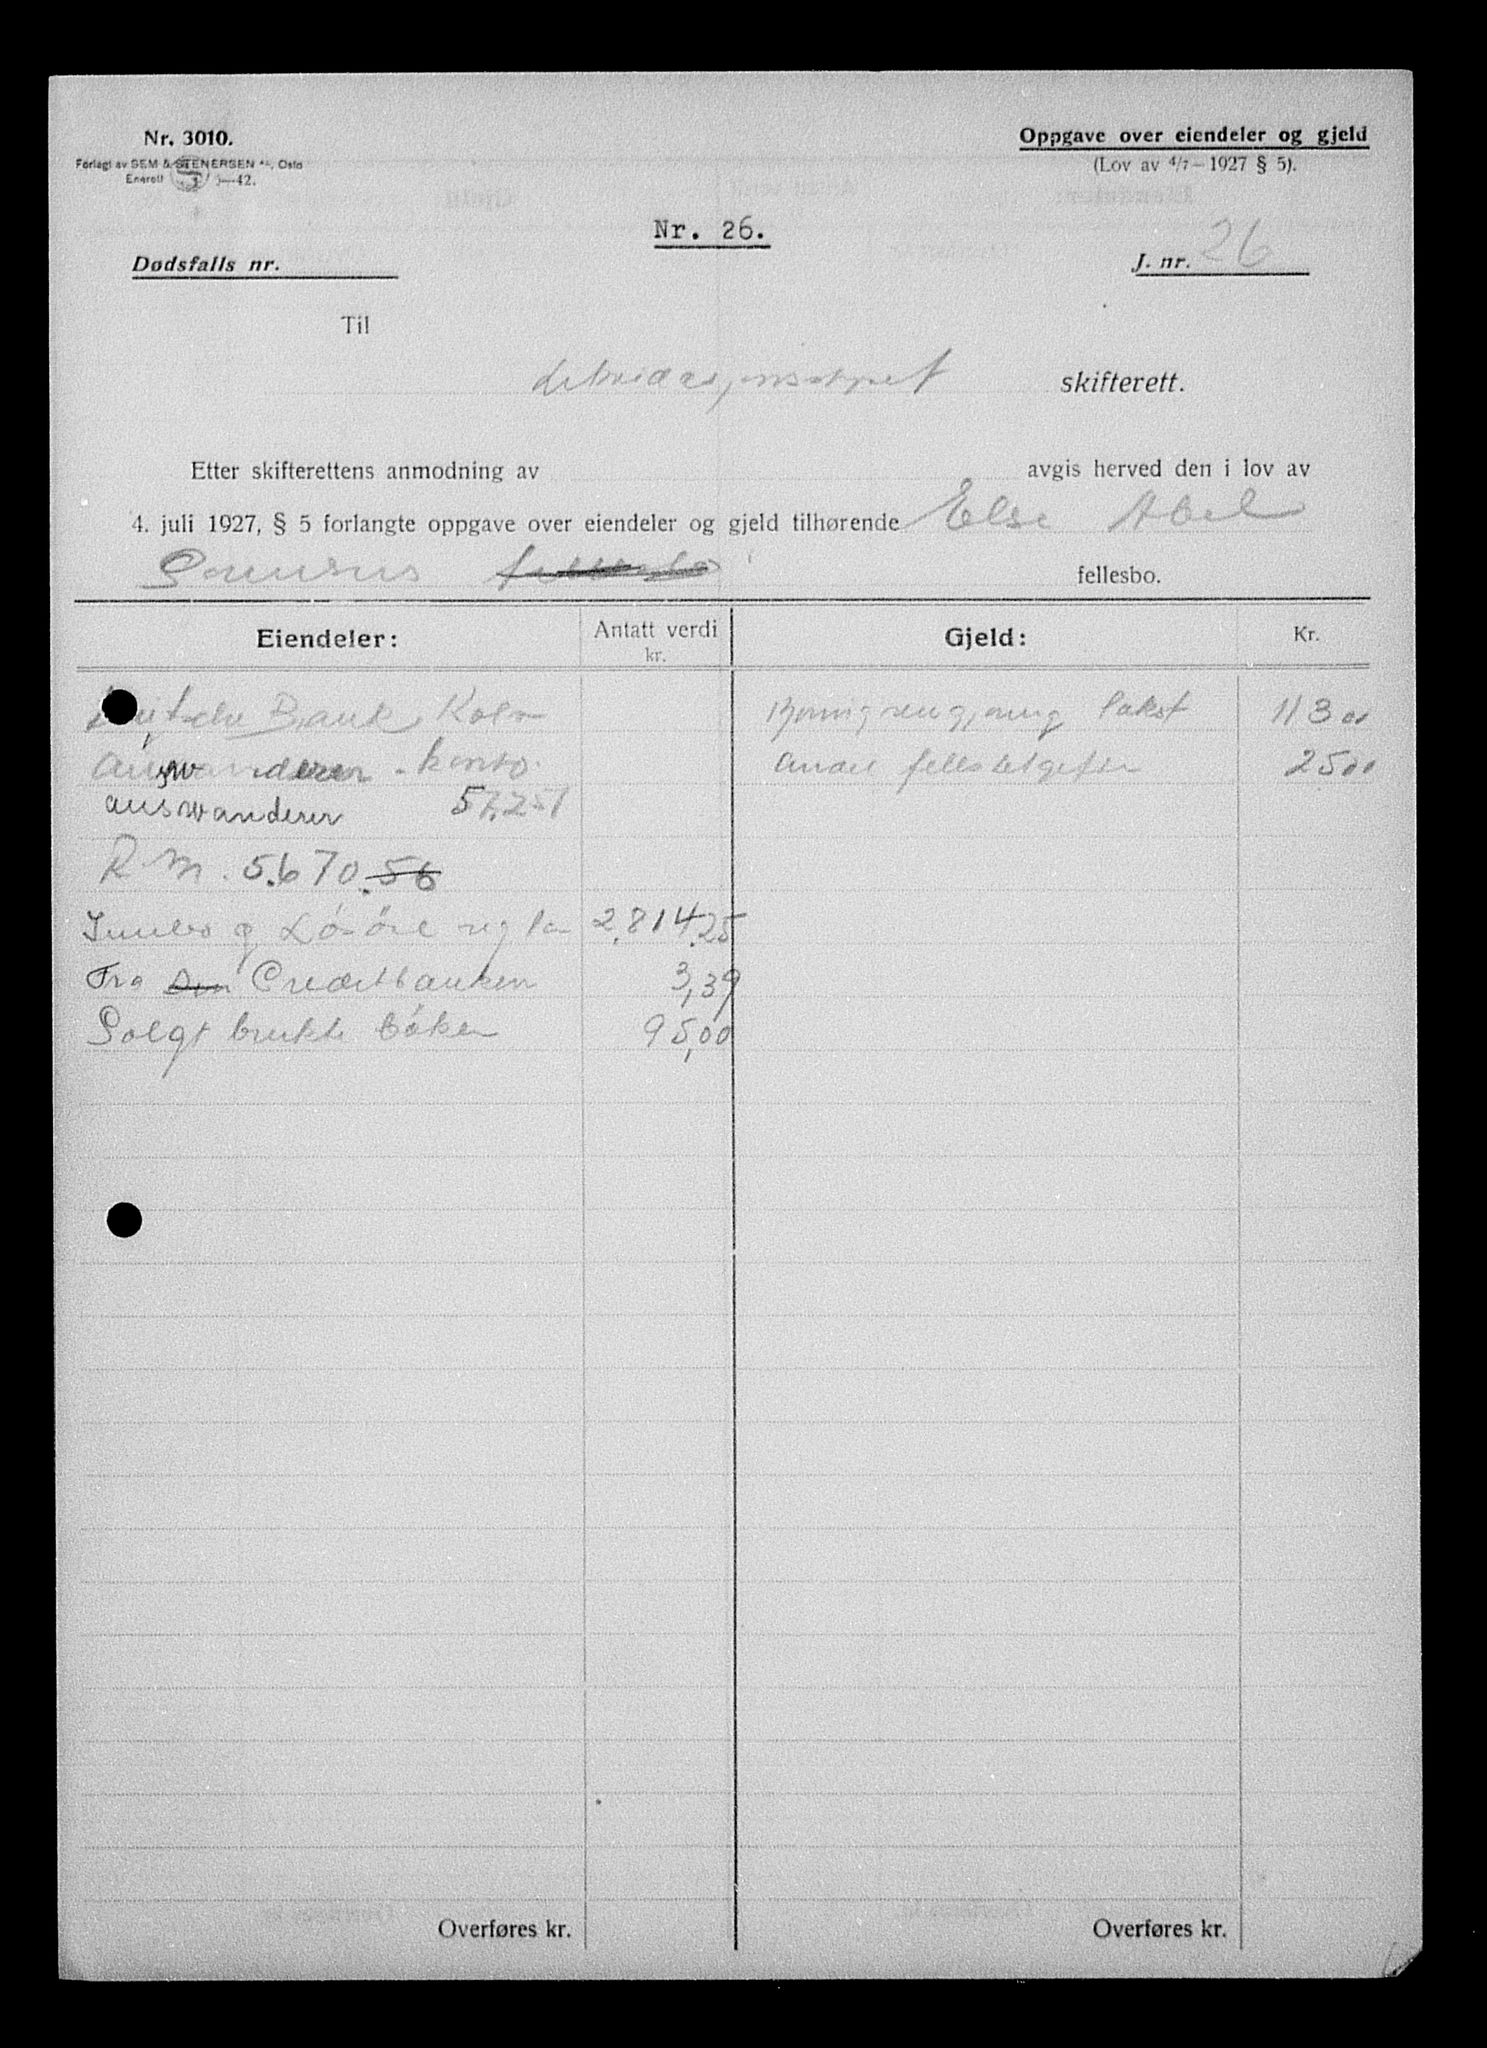 Nr. 3010.
Forlagt av SEM & STENERSEN A/S, Oslo
Enerett —42.
Oppgave over eiendeler og gjeld
(Lov av 4/7 – 1927 § 5).
Nr. 26.
Dødsfalls nr.
J. nr. 26
Til
skifterett.
Etter skifterettens anmodning av avgis herved den i lov av
4. juli 1927, § 5 forlangte oppgave over eiendeler og gjeld tilhørende Else Abel
Sorensens fellesbo.
Eiendeler: Antatt verdi kr. Gjeld: Kr.
Bank Koln 113 00
Auswanderer - konto. andel 25 00
auswanderer 57,251
R M. 5.670.56
Innbo og Lösöre 2.814.25
Fra Den Creditbanken 3,39
Solgt brukte böker 95,00
Overføres kr. Overføres kr.